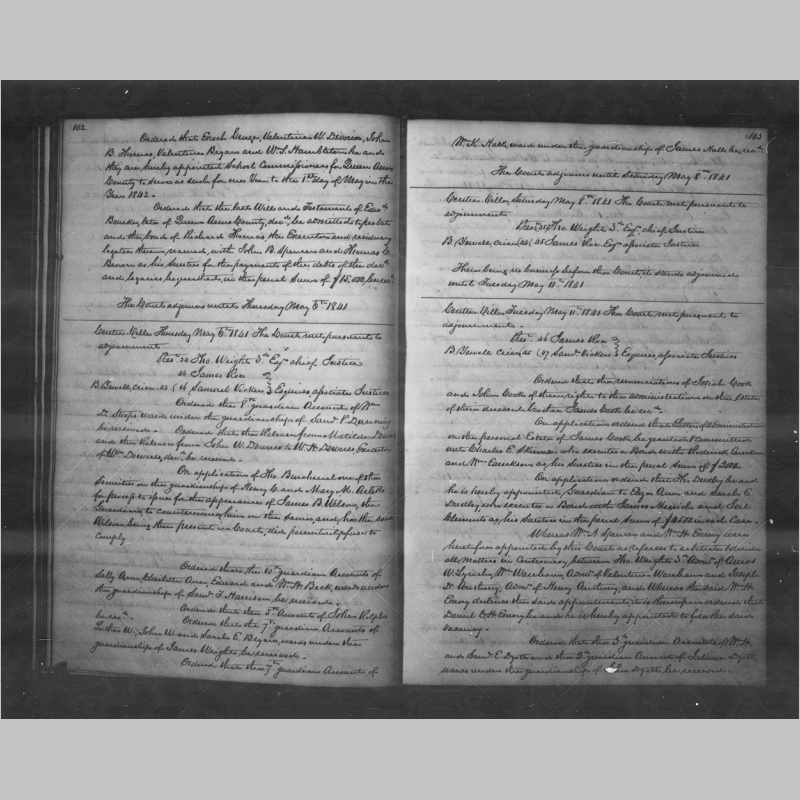 102
Ordered that Enoch George, Valentine W. Downes, John
B. Thomas, Valentine Bryan and W. S. Hambleton be and
they are hereby appointed School Commissioners for Queen Anns
County to serve as such for one Year to the 1st day of May in the
Year 1842.
Ordered that the last Will and Testament of
late of Queen Anns County, decd, be admitted to probate
and the bond of Richard Thomas, the Executor and residuary
legatee therein named, with John B. Spencer and Thomas C.
Brown as his sureties for the payment of the debts of the decd
and legacies bequeathed, in the penal sum of $15,000
The Court adjourns until Thursday May 6th 1841
Centre Ville Thursday May 6th 1841 The Court met pursuant to
adjournment
Pres. Tho. Wright 3d Esqr chief Justice
James Roe
B. Sewell, crier Samuel Vickers Esquires associate Justices
Ordered the 8th guardian Account of Wm
D. ward under the guardianship of Saml P. Dunning
be received. Ordered that the Release from Matilda Downes
and the Release from John W. Downes to W. H. Downes, Executor
of Wm Downes, decd be received.
On application of Tho. Burchenal one of the
Sureties in the guardianship of Henry C. and Mary M.
for pmp to for the appearance of James B. Wilson, the
Guardian, to countersecure him in the same, and he the said
Wilson being then present in Court, did peremptorily refuse to
comply
Ordered that the 10th guardian Accounts of
Sally Ann, Charlotte Ann, Edward and W. H. Beck, wards under
the guardianship of Saml T. Harrison be received.
Ordered that the 5th Account of John Ralph
be recd. Ordered that the 7th guardian Accounts of
W., John W. and Sarah E. Bryan, wards under the
guardianship of James Wright be received.
Ordered that the 7th guardian Accounts of
103
W. H. Hall, ward under the guardianship of James Hall be recd.
The Court adjourns until Saturday May 8th 1841
Centre Ville, Saturday May 8th 1841 The Court met pursuant to
adjournment
Pres. Tho. Wright 3d Esqr chief Justice
B. Sewell, crier James Roe Esqr associate Justice
There being no business before the Court it stands adjourned
until Tuesday May 11th 1841
Centre Ville, Tuesday May 11th 1841 The Court met pursuant to
adjournment.
Pres. James Roe
B. Sewell crier Saml Vickers Esquires associate Justices
Ordered that the renunciations of Josiah Cook
and John Cook of their right to the administration on the Estate
of their deceased brother James Cook be recd.
On application ordered that Letters of administration
on the personal Estate of James Cook be granted & committed
unto Charles E. Skinner who executes a Bond with Frederick
and Wm as his Sureties in the penal sum of $200.
On application ordered that Tho. Dudley be and
he is hereby appointed, Guardian to Eliza Ann and Sarah E.
Dudley, who executes a Bond with James Merrick and Joel
Clements as his Sureties in the penal Sum of in said Case.
Whereas Wm A. Spencer and Wm H. Emory were
heretofore appointed by this Court as referees to arbitrate & decide
all Matters in Controversy between Tho. Wright 3d Admr of Amos
W. Wm Wareham Admr of Valentine Wareham and Joseph
Admr of Henry and Whereas the said W. H.
Emory declines the said appointment, it is thereupon ordered that
Daniel C. H. Emory be and he is hereby appointed to fill the said
vacancy.
Ordered that the 3d guardian Accounts of W. H.
and Saml E. Dyott and the 2d guardian Account of Dyott
wards under the guardianship of Dyott be received.